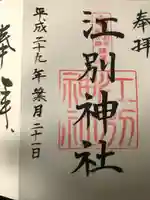 奉拝
江別神社
平成二十九年葉月二十一日
奉拝